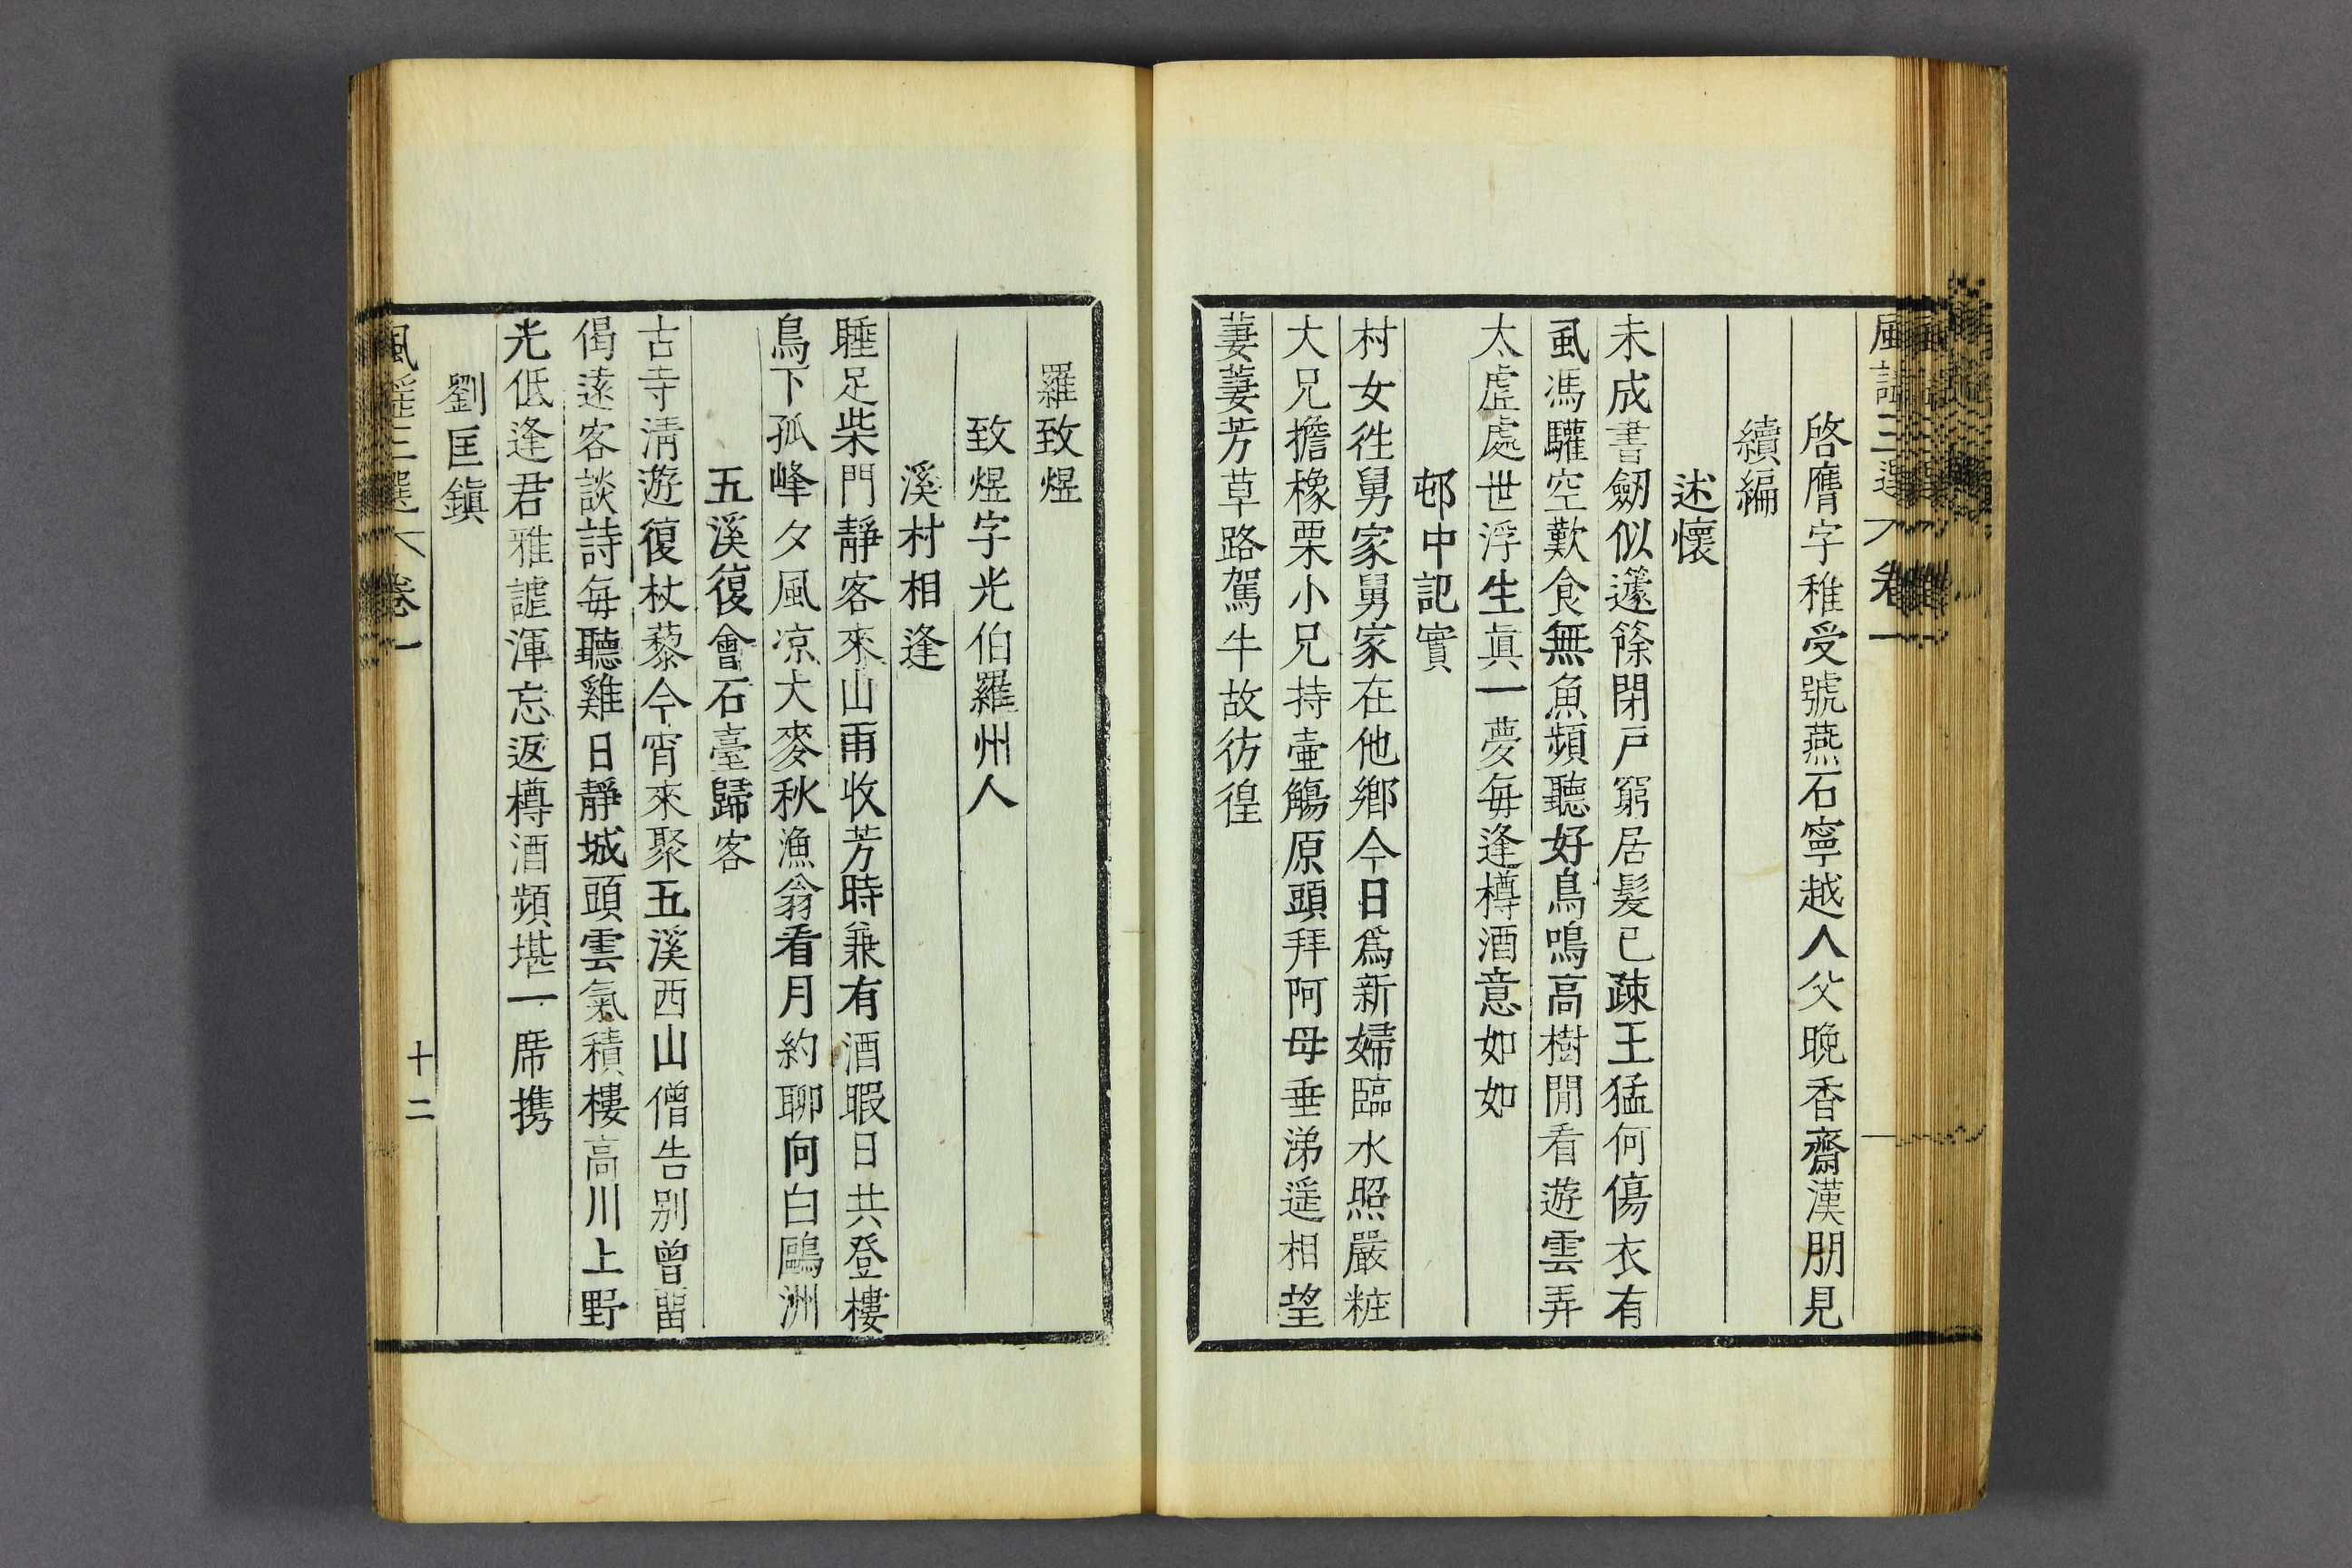 風謠三選 卷一
啓膺字稚受號燕石寧越人父晚香齋漢朋見
續編
述懷
未成書劒似籧篨閉戶窮居髮已疎王猛何傷衣有
虱馮驩空歎食無魚頻聽好鳥鳴高樹閒看遊雲弄
太虛處世浮生眞一夢每逢樽酒意如如
邨中記實
村女徃舅家舅家在他鄉今日爲新婦臨水照嚴粧
大兄擔橡栗小兄持壷觴原頭拜阿母垂涕遥相望
萋萋芳草路駕牛故彷徨
羅致煜
致煜字光伯羅州人
溪村相逢
睡足柴門靜客來山雨收芳時兼有酒暇日共登樓
鳥下孤峰夕風凉大麥秋漁翁看月約聊向白鷗洲
五溪復會石臺歸客
古寺淸遊復杖藜今宵來聚五溪西山僧告別曾留
偈遠客談詩每聽雞日靜城頭雲氣積樓高川上野
光低逢君雅謔渾忘返樽酒頻堪一席携
劉匡鎭
風謠三選 卷一 十二